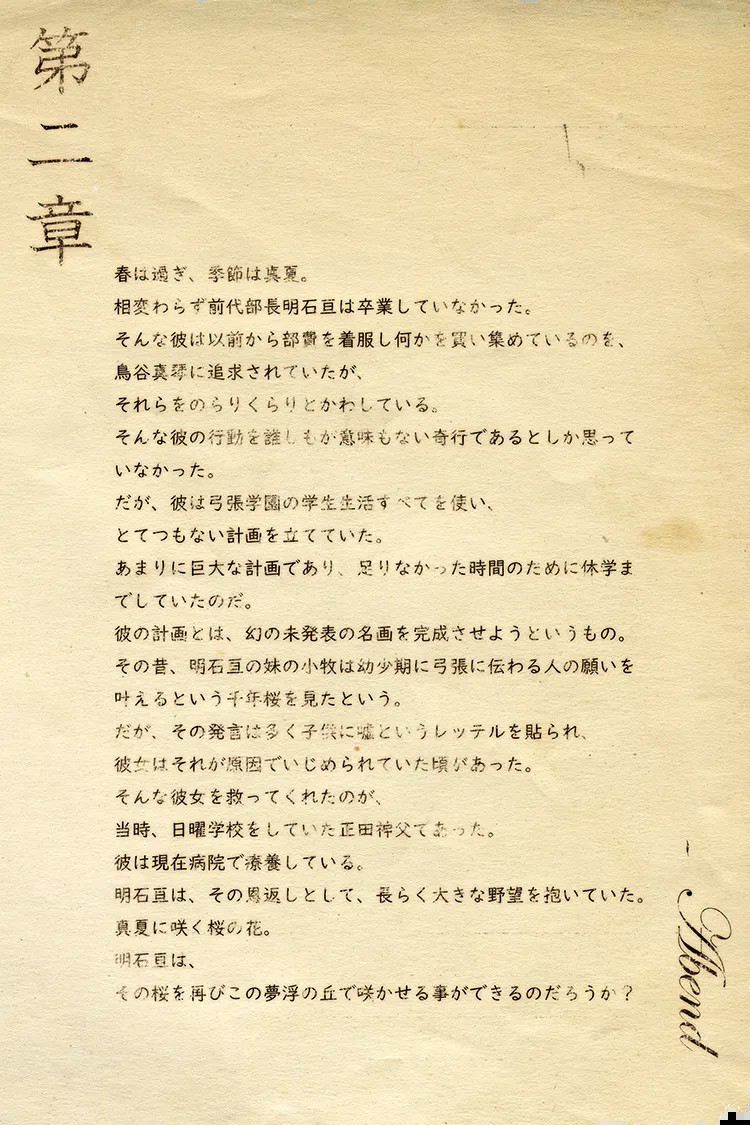 第二章
春は過ぎ、季節は真夏。
相変わらず前代部長明石亘は卒業していなかった。
そんな彼は以前から部費を着服し何かを買い集めているのを、
鳥谷真琴に追求されていたが、
それらをのらりくらりとかわしている。
そんな彼の行動を誰しもが意味もない奇行であるとしか思って
いなかった。
だが、彼は弓張学園の学生生活すべてを使い、
とてつもない計画を立てていた。
あまりに巨大な計画であり、足りなかった時間のために休学ま
でしていたのだ。
彼の計画とは、幻の未発表の名画を完成させようというもの。
その昔、明石亘の妹の小牧は幼少期に弓張に伝わる人の願いを
叶えるという千年桜を見たという。
だが、その発言は多く子供に嘘というレッテルを貼られ、
彼女はそれが原因でいじめられていた頃があった。
そんな彼女を救ってくれたのが、
当時、日曜学校をしていた正田神父であった。
彼は現在病院で療養している。
明石亘は、その恩返しとして、長らく大きな野望を抱いていた。
真夏に咲く桜の花。
明石亘は、
その桜を再びこの夢浮の丘で咲かせる事ができるのだろうか?
- Abend